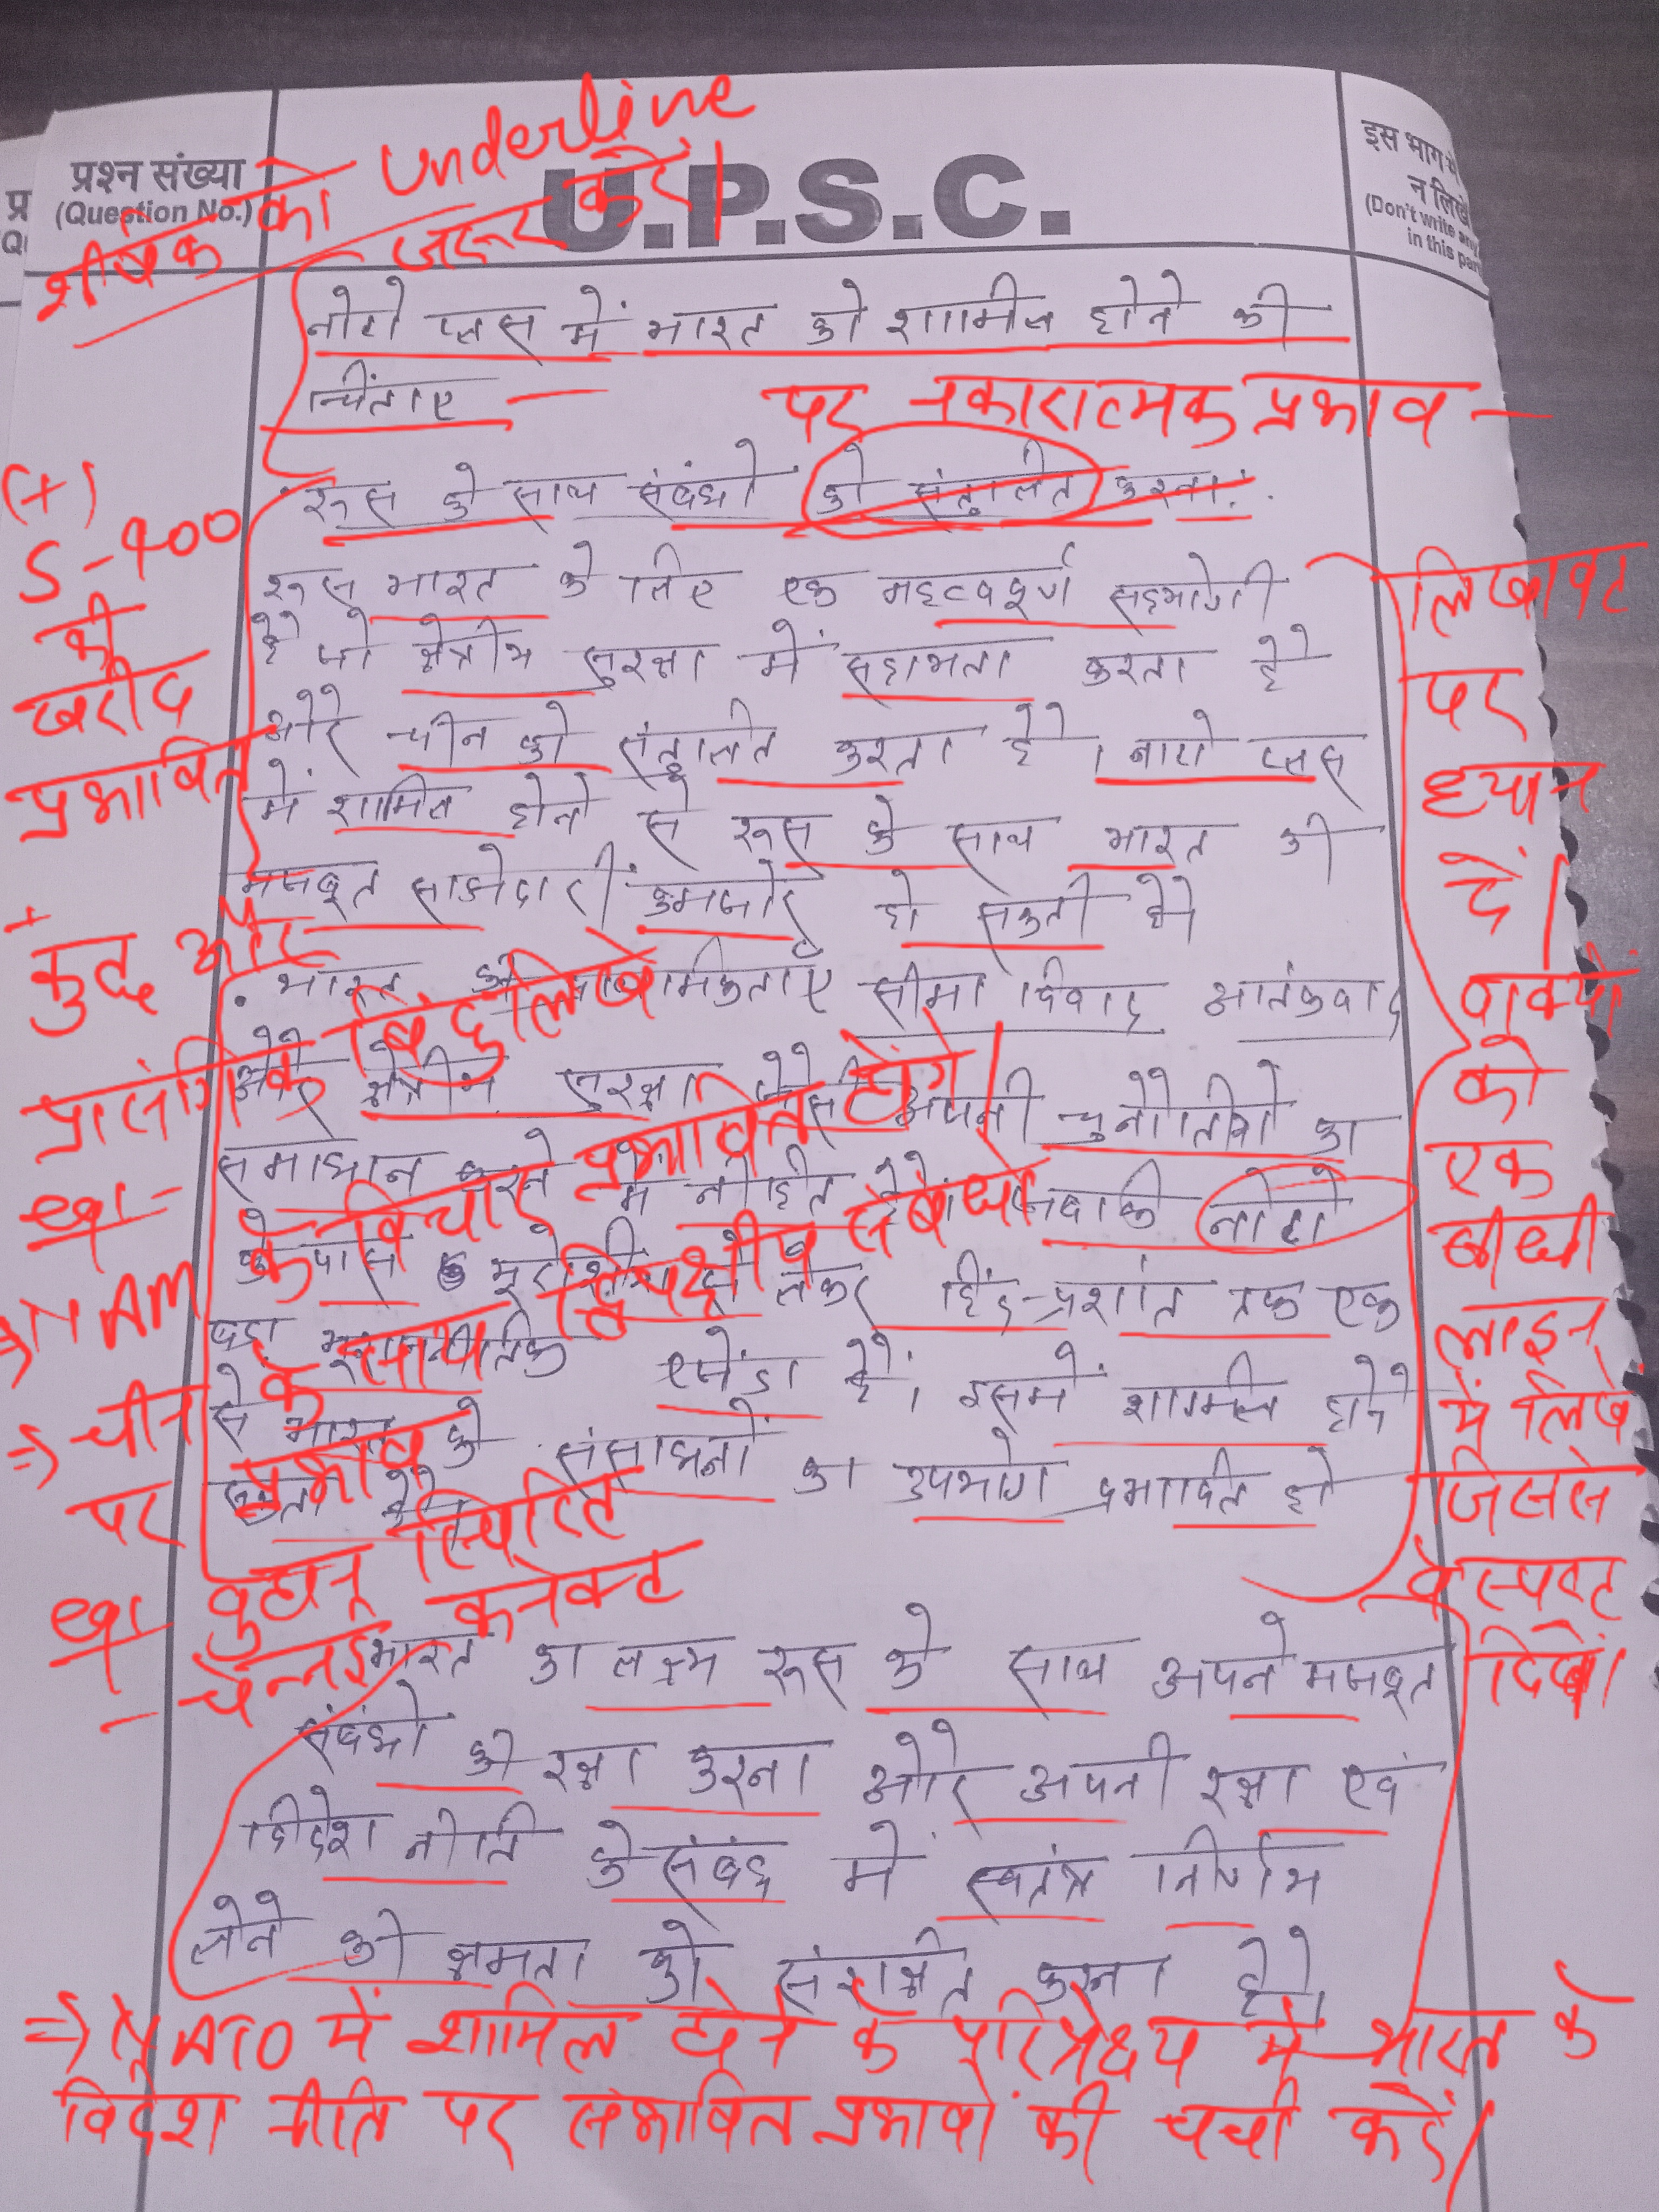 शीर्षक को underline
जरूर करें।
प्रश्न संख्या
(Question No.)
U.P.S.C.
इस भाग में
न लिखें
(Don't write any
in this part
नाटो प्लस में भारत के शामिल होने की
चिंताए
पर नकारात्मक प्रभाव -
रूस के साथ संबंधो को संतुलित करना:
(+)
S-400
की
खरीद
प्रभावित
रूस भारत के लिए एक महत्वपूर्ण सहयोगी
है जो क्षेत्रीय सुरक्षा में सहायता करता है
और चीन को संतुलित करता है। नाटो प्लस
में शामिल होने से रूस के साथ भारत की
मजबूत साझेदारी कमजोर हो सकती है।
लिखावट
पर
ध्यान
दें।
वाक्यों
को
एक
सीधी
लाइन
में लिखें
जिससे
वे स्पष्ट
दिखें।
+ कुछ और
प्रासंगिक बिंदु लिखें
• भारत की प्राथमिकताए सीमा विवाद आतंकवाद
और क्षेत्रीय सुरक्षा जैसी अपनी चुनौतियो का
समाधान करने में नीहित है। जबकि नाटो
के पास यूरेशीया से लेकर हिंद-प्रशांत तक एक
बड़ा भूराजनीतिक एजेंडा है। इसमें शामिल होने
से भारत के संसाधनों का उपयोग प्रभावित हो
सकता है।
यथा-
=> NAM के विचार प्रभावित होंगे।
=> चीन के साथ द्विपक्षीय संबंधो
पर प्रभाव
यथा वुहान स्पिरिट
- चेन्नई कनेक्ट
भारत का लक्ष्य रूस के साथ अपने मजबूत
संबंधो की रक्षा करना और अपनी रक्षा एवं
विदेश नीति के संबंध में स्वतंत्र निर्णय
लेने की क्षमता को संरक्षित करना है।
=> NATO में शामिल होने के परिप्रेक्ष्य में भारत के
विदेश नीति पर संभावित प्रभावों की चर्चा करें।